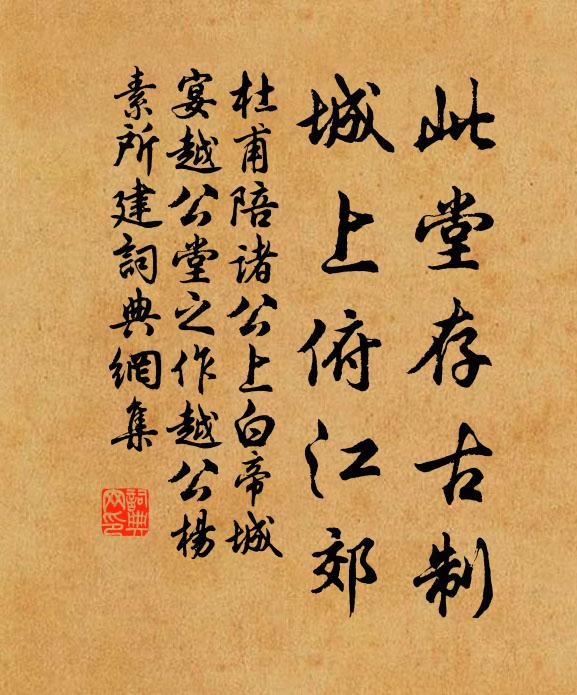 此堂存古制
城上俯江郊
杜甫陪诸公上白帝城
宴越公堂之作越公楊
素所建詞典網集
詞典
网印